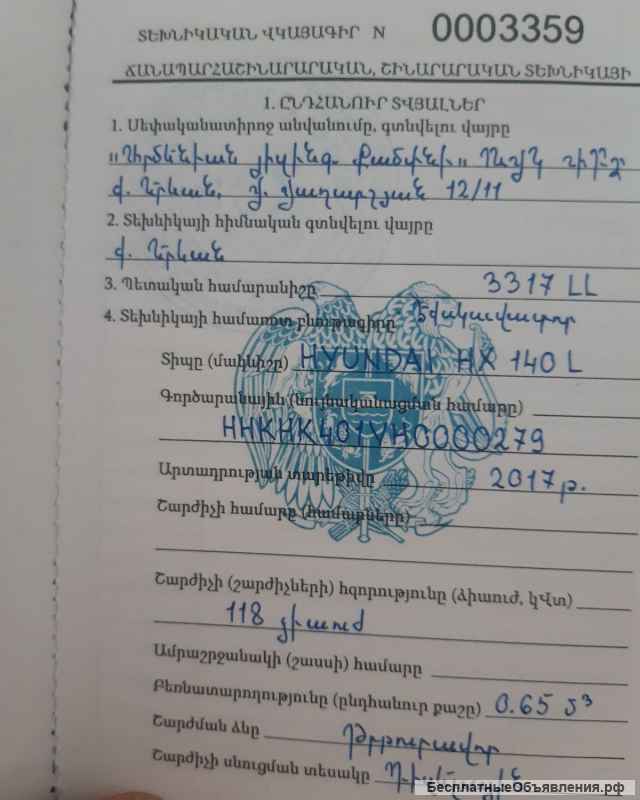 ՏԵԽՆԻԿԱԿԱՆ ՎԿԱՅԱԳԻՐ N 0003359
ՃԱՆԱՊԱՐՀԱՇԻՆԱՐԱՐԱԿԱՆ, ՇԻՆԱՐԱՐԱԿԱՆ ՏԵԽՆԻԿԱՅԻ
1. ԸՆԴՀԱՆՈՒՐ ՏՎՅԱԼՆԵՐ
1. Սեփականատիրոջ անվանումը, գտնվելու վայրը
ք. Երևան, 12/11
2. Տեխնիկայի հիմնական գտնվելու վայրը
ք. Երևան
3. Պետական համարանիշը 3317 LL
4. Տեխնիկայի համառոտ բնութագիրը Էքսկավատոր
Տիպը (մակնիշը) HYUNDAI HX 140 L
Գործարանային (նույնականացման համարը)
HHKHK401VH0000279
Արտադրության տարեթիվը 2017թ.
Շարժիչի համարը (համարները)
Շարժիչի (շարժիչների) հզորությունը (ձիաուժ, կՎտ)
118 ձիաուժ
Ամրաշրջանակի (շասսի) համարը
Բեռնատարողությունը (ընդհանուր քաշը) 0.65 մ³
Շարժման ձևը Թրթուրավոր
Շարժիչի սնուցման տեսակը
БесплатныеОбъявления.рф